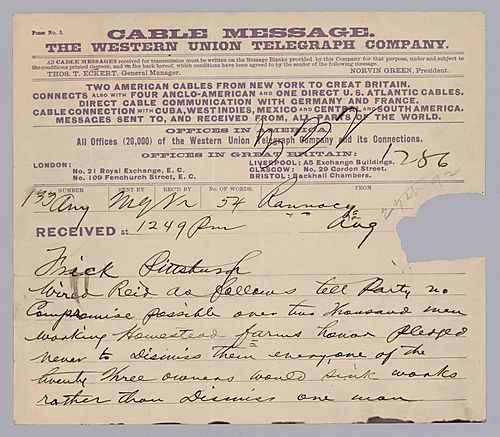 FORM No. 3.
CABLE MESSAGE.
THE WESTERN UNION TELEGRAPH COMPANY.
All CABLE MESSAGES received for transmission must be written on the Message Blanks provided by this Company for that purpose, under and subject to
the conditions printed thereon, and on the back hereof, which conditions have been agreed to by the sender of the following message.
THOS. T. ECKERT, General Manager. NORVIN GREEN, President.
TWO AMERICAN CABLES FROM NEW YORK TO GREAT BRITAIN.
CONNECTS ALSO WITH FOUR ANGLO-AMERICAN AND ONE DIRECT U.S. ATLANTIC CABLES.
DIRECT CABLE COMMUNICATION WITH GERMANY AND FRANCE.
CABLE CONNECTION WITH CUBA, WEST INDIES, MEXICO AND CENTRAL AND SOUTH AMERICA.
MESSAGES SENT TO, AND RECEIVED FROM, ALL PARTS OF THE WORLD.
OFFICES IN AMERICA:
All Offices (20,000) of the Western Union Telegraph Company and its Connections.
OFFICES IN GREAT BRITAIN:
1286
LONDON: LIVERPOOL: A5 Exchange Buildings.
No. 21 Royal Exchange, E. C. GLASGOW: No. 29 Gordon Street.
No. 109 Fenchurch Street, E. C. BRISTOL: Backhall Chambers.
NUMBER SENT BY REC'D BY No. OF WORDS. FROM
133 54 Rannoch
RECEIVED at 1249 Pm Aug
Frick Pittsburgh
Wired Reid as follows tell Party no
Compromise possible over two thousand men
working Homestead farms honor pledged
never to Dismiss them everyone of the
twenty three owners would sink works
rather than Dismiss one man